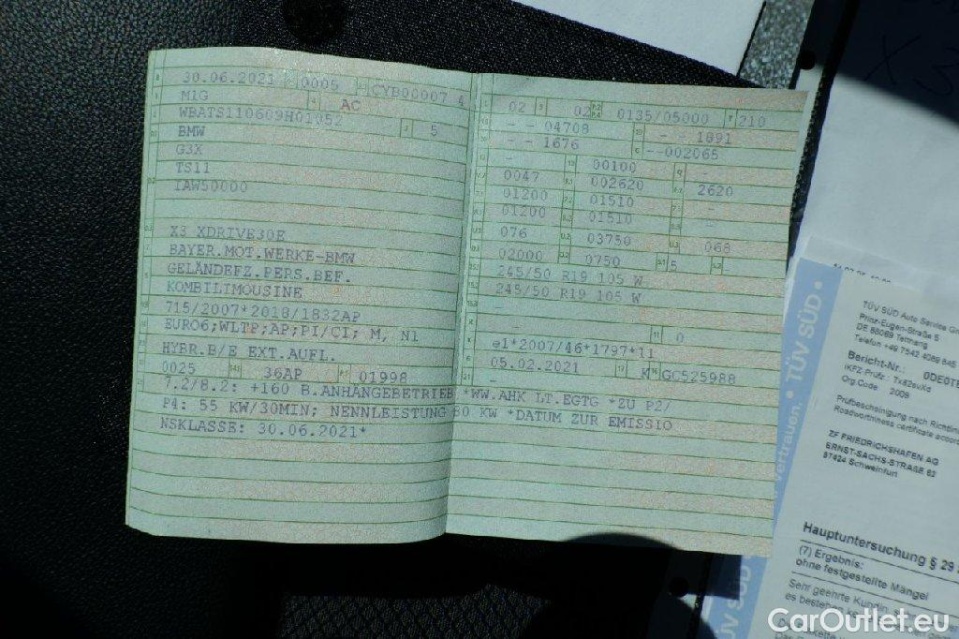 30.06.2021 0005 CYB00007 4
M1G AC
WBATS110609H01052 5
BMW
G3X
TS11
IAW50000
X3 XDRIVE30E
BAYER.MOT.WERKE-BMW
GELÄNDEFZ.PERS.BEF.
KOMBILIMOUSINE
715/2007*2018/1832AP
EURO6;WLTP;AP;PI/CI; M, N1
HYBR.B/E EXT.AUFL.
0025 36AP 01998
02 02 0135/05000 210
- - 04708 - 1891
- - 1676 --002065
- 00100 -
0047 002620 2620
01200 01510 -
01200 01510 -
076 03750 068
02000 0750 5
245/50 R19 105 W
245/50 R19 105 W
-
- 0
e1*2007/46*1797*11
05.02.2021 K GC525988
-
7.2/8.2: +160 B.ANHÄNGEBETRIEB *WW.AHK LT.EGTG *ZU P2/
P4: 55 KW/30MIN; NENNLEISTUNG 80 KW *DATUM ZUR EMISSIO
NSKLASSE: 30.06.2021*
Vertrauen. • TÜV SÜD •
TÜV SÜD Auto Service
Prinz-Eugen-Straße 5
DE 88069 Tettnang
Telefon +49 7542
Bericht-Nr.:
Org.Code
Prüfbescheinigung nach
Roadworthiness certificate
ZF FRIEDRICHSHAFEN AG
ERNST-SACHS-STRAßE 62
97424 Schweinfurt
Hauptuntersuchung § 29
(7) Ergebnis:
ohne festgestellte Mängel
Sehr geehrte Kundin,
es
CarOutlet.eu